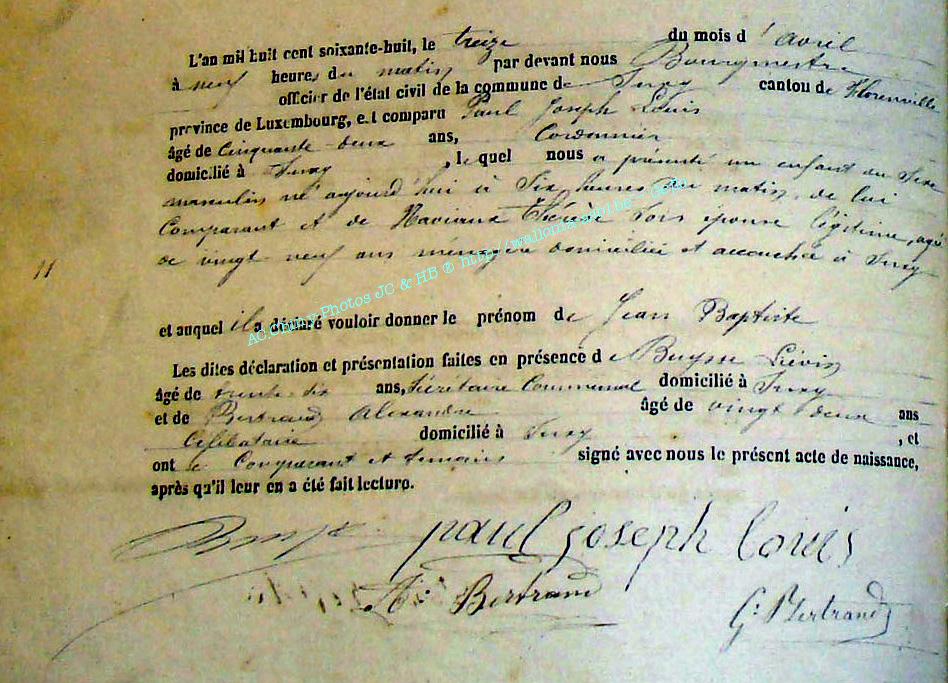 L'an mil huit cent soixante-huit, le treize du mois d'avril
à neuf heures du matin par devant nous Bourgmestre
officier de l'état civil de la commune de Suxy canton de Florenville
province de Luxembourg, est comparu Paul Joseph Louis
âgé de cinquante-deux ans, Cordonnier
domicilié à Suxy, lequel nous a présenté un enfant du sexe
masculin né aujourd'hui à Six heures du matin, de lui
Comparant et de Haviaux Thérèse son épouse légitime, agée
de vingt neuf ans ménagère domiciliée et accouchée à Suxy
11
et auquel il a déclaré vouloir donner le prénom de Jean Baptiste
Les dites déclaration et présentation faites en présence de Buysse Liévin
âgé de trente six ans, Sécrétaire Communal domicilié à Suxy
et de Bertrand Alexandre âgé de vingt deux ans
Célibataire domicilié à Suxy, et
ont le Comparant et temoins signé avec nous le présent acte de naissance,
après qu'il leur en a été fait lecture.
paul joseph louis
Bertrand
G: Bertrand
AC.Chiny-Photos JC & HB @ http://wallonia